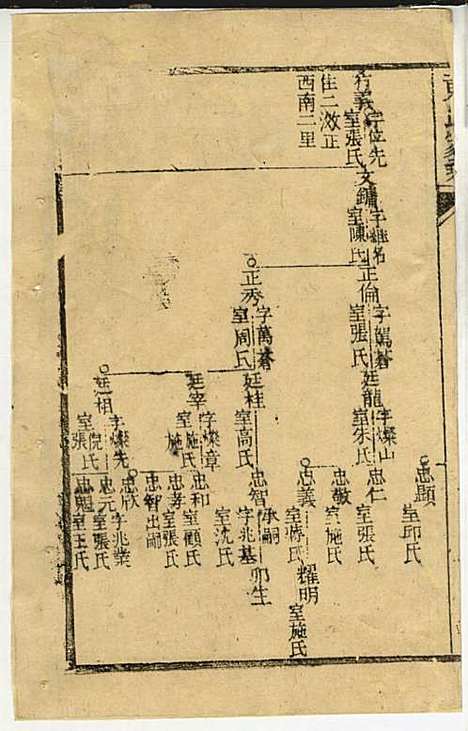 忠顯
室邱氏
行義
字位先
室張氏
住二效正
西南二里
文鏞
室陳氏
正倫
字萬蒼
室張氏
廷龍
字燦山
室朱氏
忠仁
室張氏
忠敬
室施氏
忠義
室陳氏
耀明
室施氏
正秀
字萬蒼
室周氏
廷桂
室高氏
忠智
承嗣
字兆基
室沈氏
卯生
廷宰
字燦章
室施氏
施
忠和
室顧氏
忠孝
室張氏
忠智出嗣
廷相
字燦先
室倪氏
室張
忠欣
字兆業
忠元
室張氏
室王氏